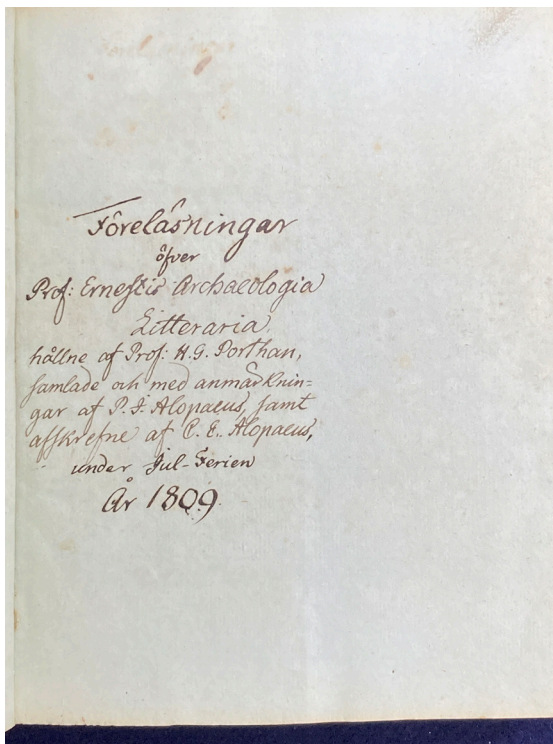 Föreläsningar
öfver
Prof: Ernestis Archaeologia
Litteraria,
hållne af Prof: H.G. Porthan,
samlade och med anmärknin=
gar af P. J. Alopaeus, samt
afskrefne af C. E. Alopaeus,
under Jul-Ferien
År 1809.